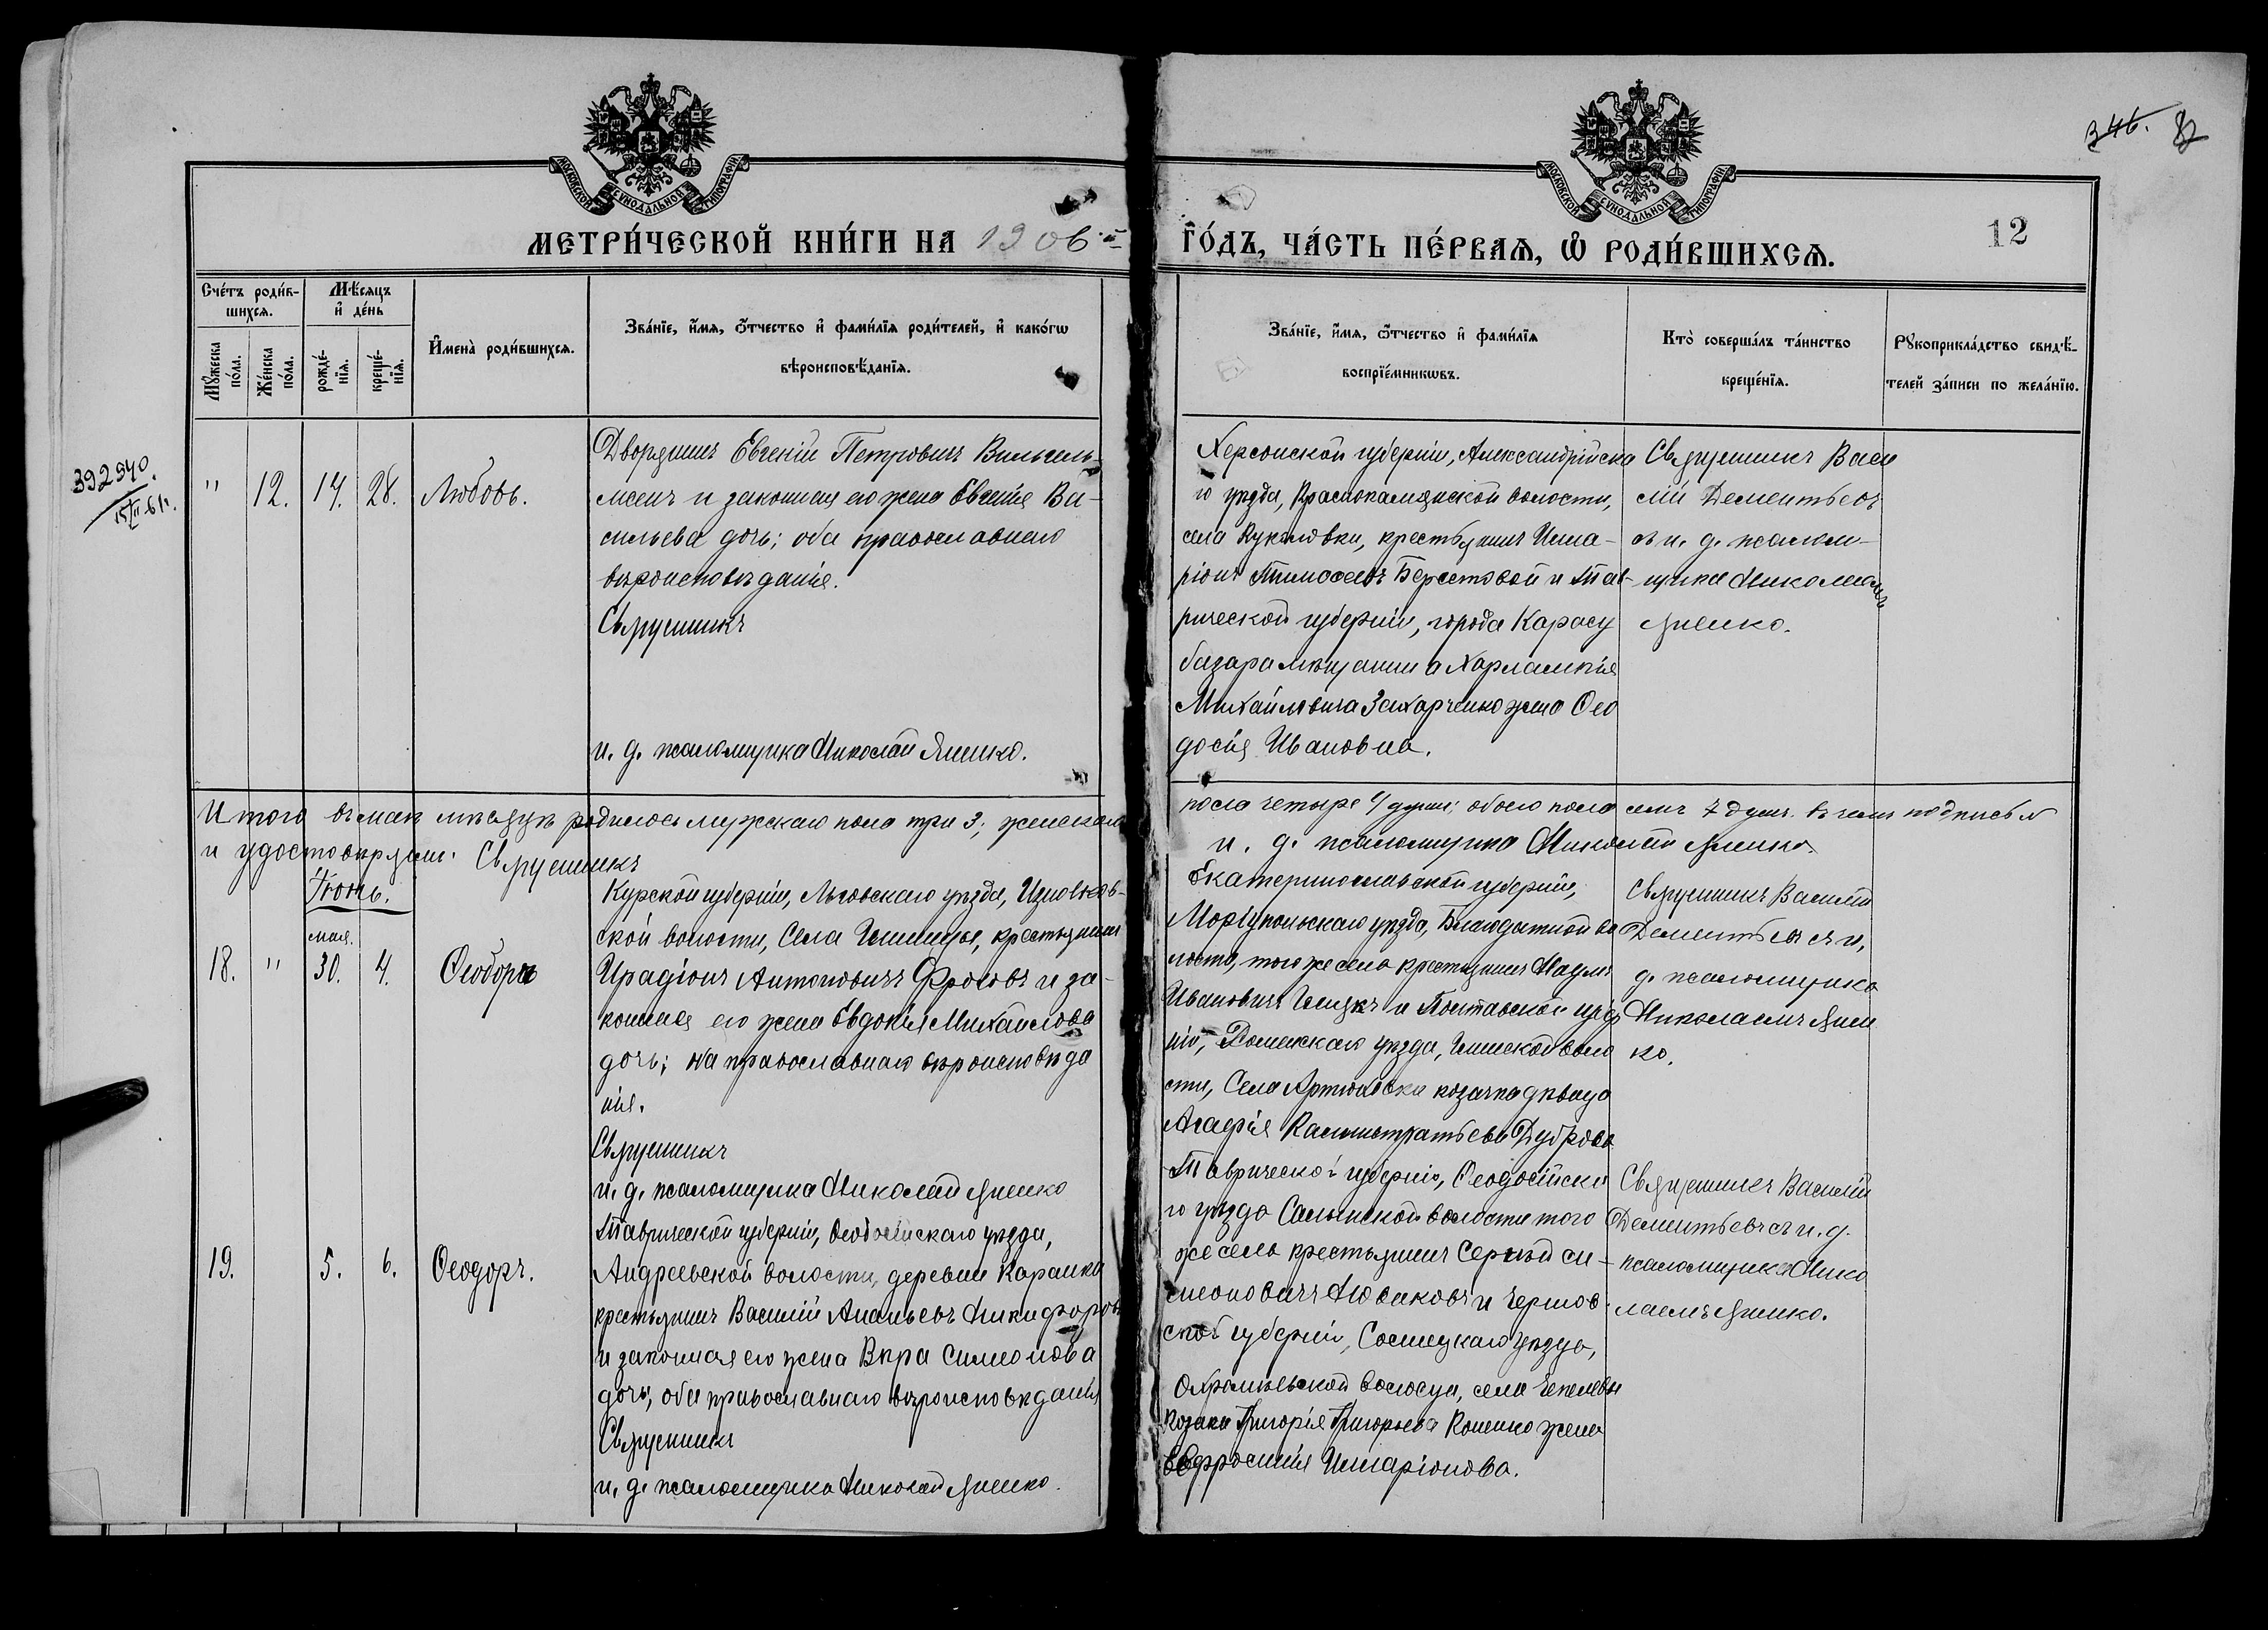 346. 82
МОСКОВСКОЙ СѴНОДАЛЬНОЙ ТИПОГРАФІИ
МОСКОВСКОЙ СѴНОДАЛЬНОЙ ТИПОГРАФІИ
12
МЕТРИ́ЧЕСКОЙ КНИ́ГИ НА 1906й
ГО́ДЪ, ЧА́СТЬ ПЕ́РВАѦ, Ѡ РОДИ́ВШИХСѦ.
Сче́тъ роди́в-
шихсѧ.
Мѣ́сѧцъ
и҆ де́нь
Мꙋ́жеска
по́ла.
Же́нска
по́ла.
рожде́-
нїѧ.
креще́-
нїѧ.
И҆мена̀ роди́вшихсѧ.
Зва́нїе, и҆́мѧ, ѻ҆́тчество и҆ фами́лїѧ роди́телей, и҆ како́гѡ
вѣроисповѣ́данїѧ.
Зва́нїе, и҆́мѧ, ѻ҆́тчество и҆ фами́лїѧ
воспрїе́мникѡвъ.
Кто̀ соверша́лъ та́инство
креще́нїѧ.
Рꙋкоприкла́дство свидѣ́-
телей за́писи по жела́нїю.
392940.
15/II-61г.
" 12. 17. 28. Любовь.
Дворянинъ Евгеній Петровичъ Вильгель-
мсенъ и законная его жена Евгенія Ва-
сильева дочь; оба православнаго
вѣроисповѣданія.
Священникъ
и. д. псаломщика Николай Яненко.
Херсонской губерніи, Александрійска
го уѣзда, Краснокамянской волости,
села Куколовки, крестьянинъ Илла-
ріонъ Тимоѳеевъ Берестовой и Тав-
рической губерніи, города Карасу
базара мѣщанина Харлампія
Михайловича Захарченко жена Ѳео
досія Ивановна.
Священникъ Васи
лій Дементьевъ
съ и. д. псалом-
щика Николаемъ
Яненко.
Итого въ маѣ мѣсяцѣ родилось мужскаго пола три 3; женскаго
пола четыре 4 души; обоего пола семь 7 душъ. въ чемъ подписью
и удостовѣряемъ. Священникъ
и. д. псаломщика Николай Яненко.
Іюнь.
мая.
18. " 30. 4. Ѳеодоръ
Курской губерніи, Льговскаго уѣзда,
ской волости, Села крестьянинъ
Ирадіонъ Антоновичъ Фроловъ и за-
конная его жена Евдокія Михайлова
дочь; оба православнаго вѣроисповѣда
нія.
Священникъ
и. д. псаломщика Николай Яненко
Екатеринославской губерніи,
Маріупольскаго уѣзда, Благодатной во
лости, того же села крестьянинъ Наумъ
Ивановичъ и Полтавской губер
ніи, Роменскаго уѣзда, воло
сти, Села Артюховки козачка дѣвица
Агафія Каллистратьева Дуброва
Священникъ Василій
Дементьевъ съ и,
д. псаломщика
Николаемъ Янен
ко.
19. 5. 6. Ѳеодоръ.
Таврической губерніи, Ѳеодосійскаго уѣзда,
Андреевской волости, деревни Каранки
крестьянинъ Василій Ананьевъ Никифоровъ
и законная его жена Вѣра Симеонова
дочь, оба православнаго вѣроисповѣданія
Священникъ
и. д. псаломщика Николай Яненко.
Таврической губерніи, Ѳеодосійска
го уѣзда Салынской волости того
же села крестьянинъ Сергѣй Си-
меоновичъ Аюваковъ и Чернигов
ской губерніи, Сосницкаго уѣзда,
Охрамѣевской волости, села Чепелева
козака Григорія Григорьева Коненко жена
Евфросинія Илларіонова.
Священникъ Василій
Дементьевъ съ и. д.
псаломщика Нико
лаемъ Яненко.